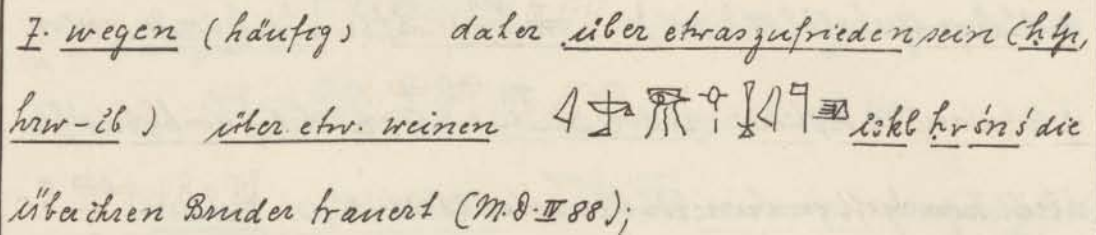 7. wegen (häufig) daher über etwas zufrieden sein (ḥtp,
hrw-ib) über etw. weinen iꜣkb ḥr śn ś die
über ihren Bruder trauert (M.D. IV 88);